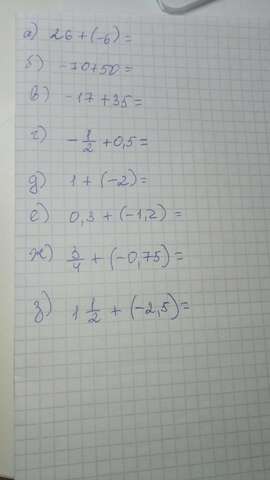 а) 26 + (-6) =
б) -70+50=
в) -17 + 35 =
г) -1/2 + 0,5 =
д) 1 + (-2) =
е) 0,3 + (-1,2) =
ж) 3/4 + (-0,75) =
з) 1 1/2 + (-2,5) =